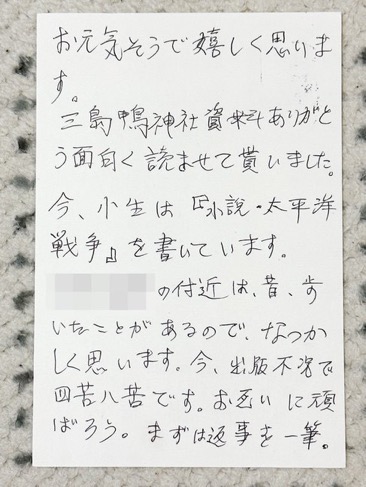 お元気そうで嬉しく思いま
す。
三島鴨神社資料ありがと
う面白く読ませて貰いました。
今、小生は『小説・太平洋
戦争』を書いています。
の付近は、昔、歩
いたことがあるので、なつか
しく思います。今、出版不況で
四苦八苦です。お互いに頑
ばろう。まずは返事を一筆。